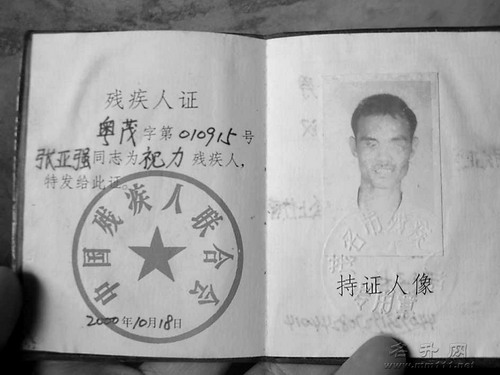 残疾人证
粤茂字第010915号
张亚强同志为视力残疾人,
特发给此证。
中国残疾人联合会
2000年10月18日
持证人像
专用章
名升网
www.mm111.net